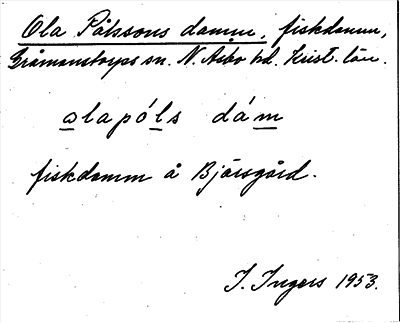 Ola Pålssons damm, fiskdamm,
Gråmanstorps sn. N. Åsbo hd. Krist. län.
olapó́ls dám
fiskdamm å Bjärsgård.
I. Ingers 1953.